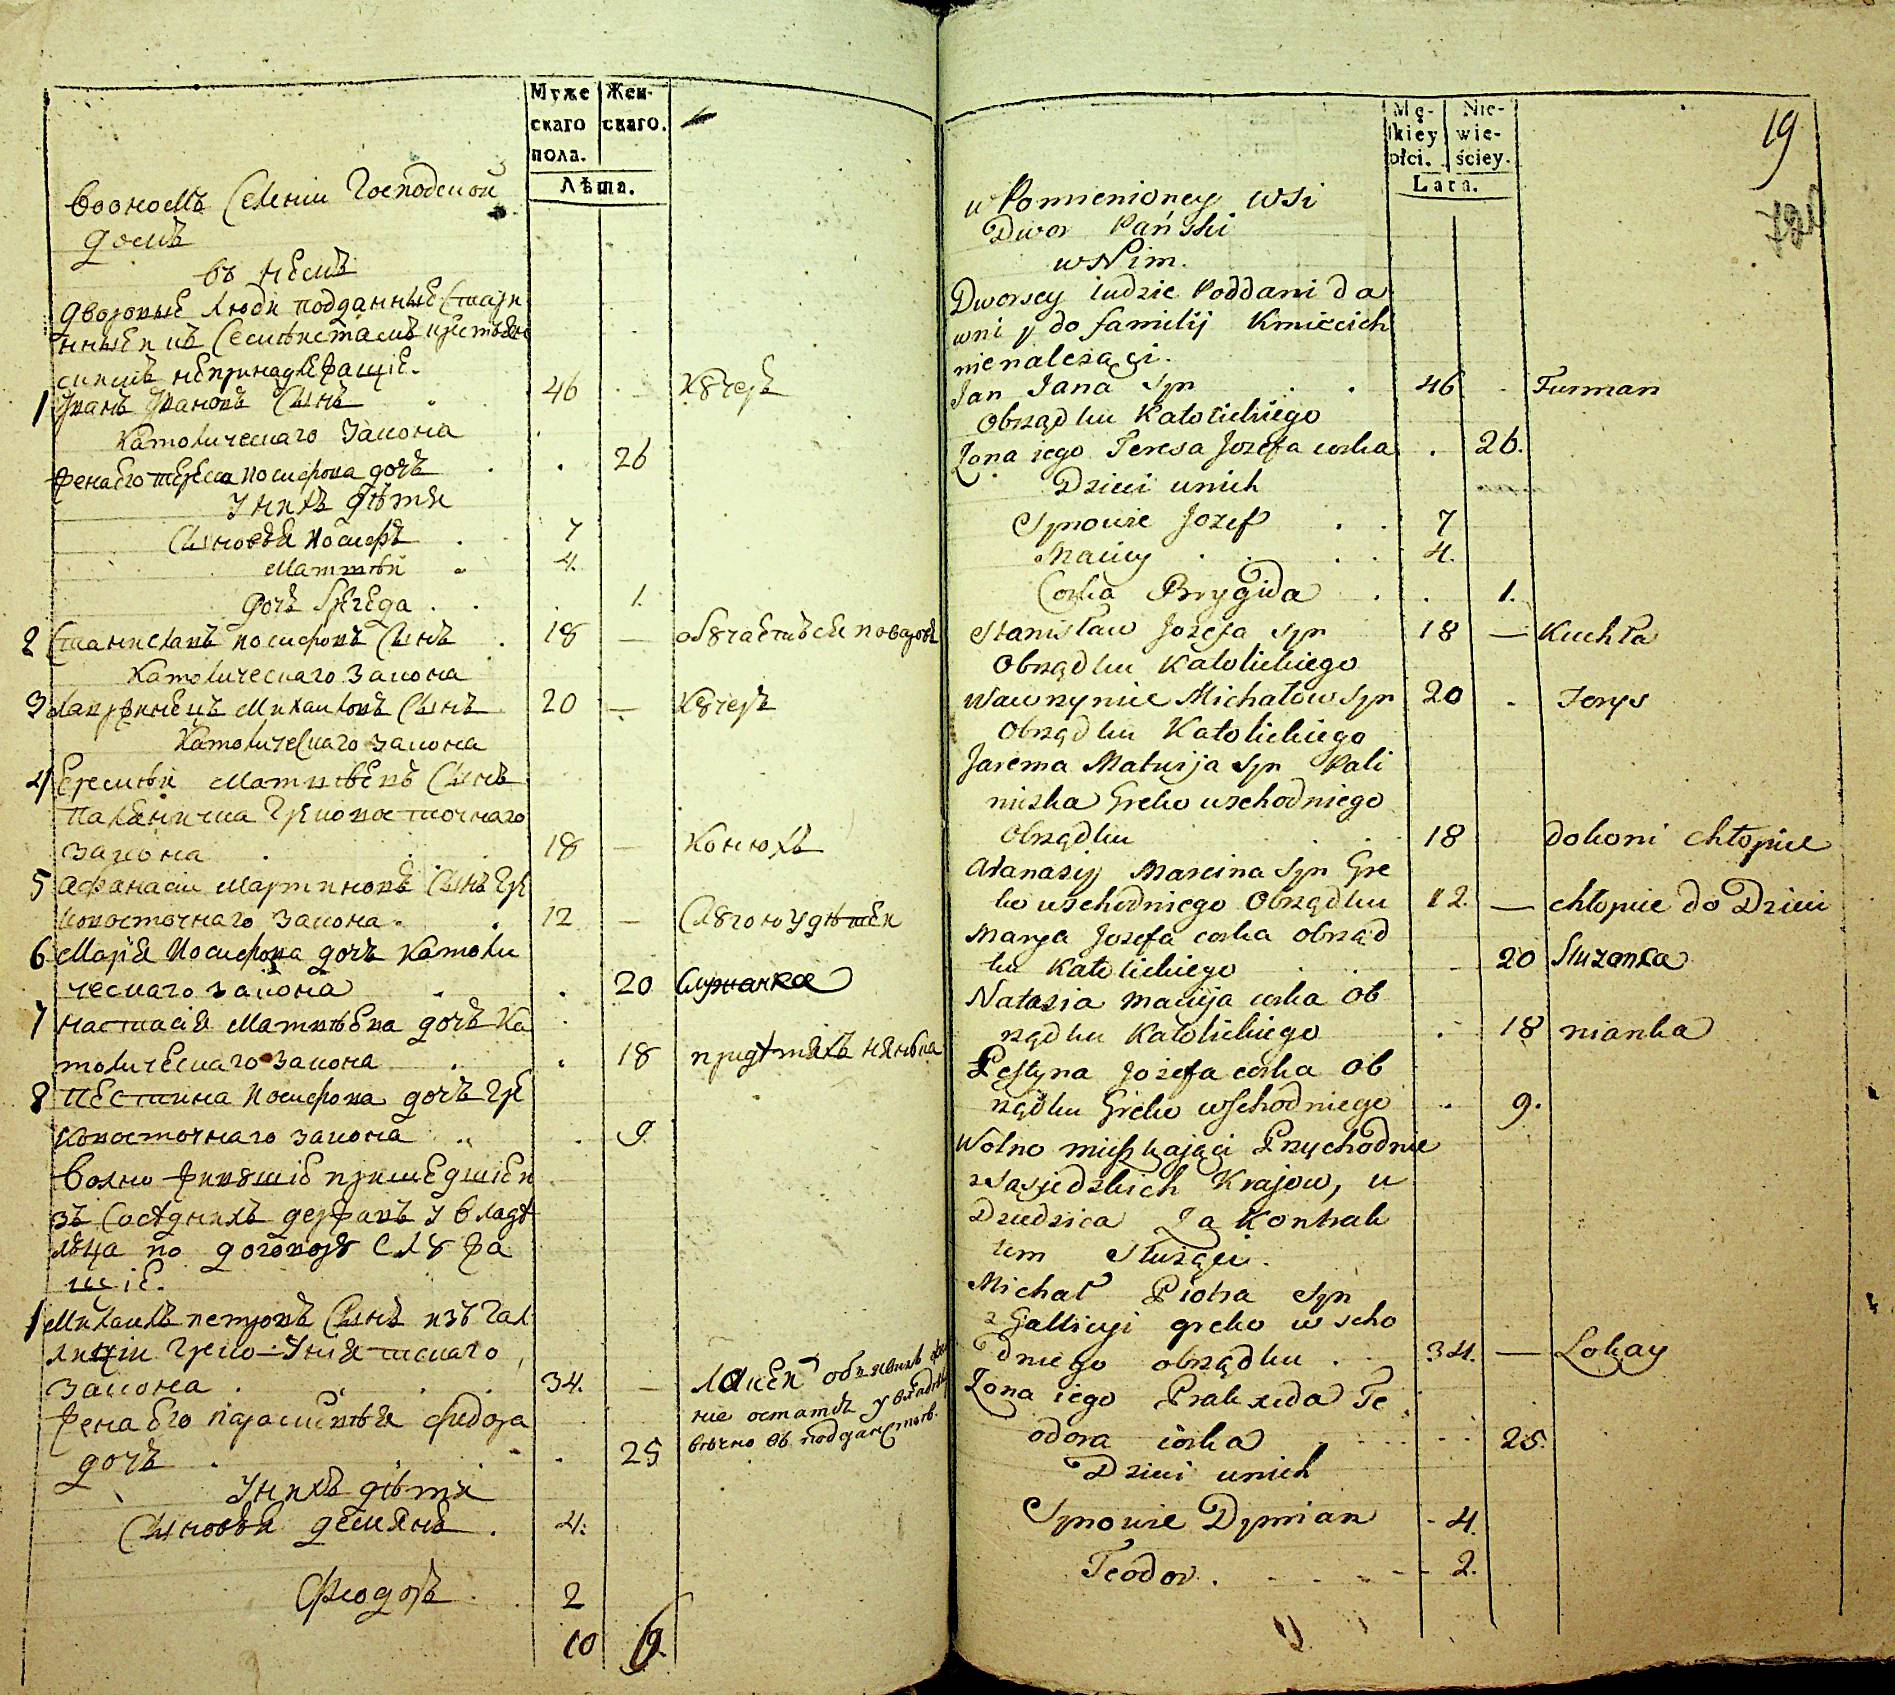 Муже
скаго
пола.
Жен-
скаго.
Лѣта.
Воономъ Селенiи Господской
домъ
въ немъ
дворовые люди подданные Стари
нные и къ Семействамъ крестьян
скимъ непринадлежащiе.
1 Иванъ Ивановъ Сынъ 46 Кучеръ
Католическаго Закона
жена его тереса иосифова дочь 26
У нихъ дѣти
Сыновья иосифъ 7
Маттѣй 4.
дочь 1.
2 Станиславъ иосифовъ Сынъ 18 —
Католическаго Закона
3 Лавринецъ Михаиловъ Сынъ 20 — Кучеръ
Католическаго закона
4 Еремѣй Маттвѣевъ Сынъ
Грековосточнаго
закона 18 — Конюхъ
5 Афанасiи Мартиновъ Сынъ Гре
ковосточнаго Закона 12 —
6 Марiя Иосифова дочь Католи
ческаго закона 20 Служанка
7 настасiя Маттвѣева дочь Ка
толическаго Закона 18 придѣтяхъ нянька
8 пестина Иосифова дочь Гре
ковосточнаго закона 9
Волно живущiе пришедшiе и
зъ Сосѣднихъ державъ у владѣ
лца по договору служа
щiе.
1 Михаилъ петровъ Сынъ изъ Гал
лицiи Греко-Унiятскаго
закона 34. — Лакей
жена его Параскевiя федора
дочь 25
У нихъ дѣти
Сыновья демянъ 4.
Феодоръ 2
10 6.
Mę-
skiey
płci.
Nie-
wie-
ściey.
Lata.
19
w Pomienioney wsi
Dwor Pański
w Nim.
Dworscy ludzie Poddani da
wni y do familij Kmiecich
nienależący.
Jan Jana Syn 46 Furman
Obrządku Katolickiego
Zona iego Teresa Jozefa corka 26.
Dzieci unich
Synowie Jozef 7
Maciey 4.
Corka Brygida 1.
Stanisław Jozefa Syn 18 — Kuchta
Obrządku Katolickiego
Wawrzyniec Michałow Syn 20 Forys
Obrządku Katolickiego
Jarema Matwija Syn Pali
niczka Greko wschodniego
Obrządku 18 dokoni chłopiec
Atanazij Marcina Syn Gre
ko wschodniego Obrządku 12. — chłopiec do Dzieci
Marya Jozefa corka obrząd
ku Katolickiego 20 Służanka
Natazia Macieja corka Ob
rządku Katolickiego 18 nianka
Pestyna Jozefa corka Ob
rządku Greko wschodniego 9.
Wolno mieszkający Przychodnie
z Sąsiedzkich Krajow, u
Dziedzica Za Kontrak
tem Służący.
Michał Piotra Syn
z Gallicyi greko wscho
dniego obrządku 34. — Lokay
Zona iego Praxeda Te
odora corka 25.
Dzieci unich
Synowie Dymian 4.
Teodor. 2.